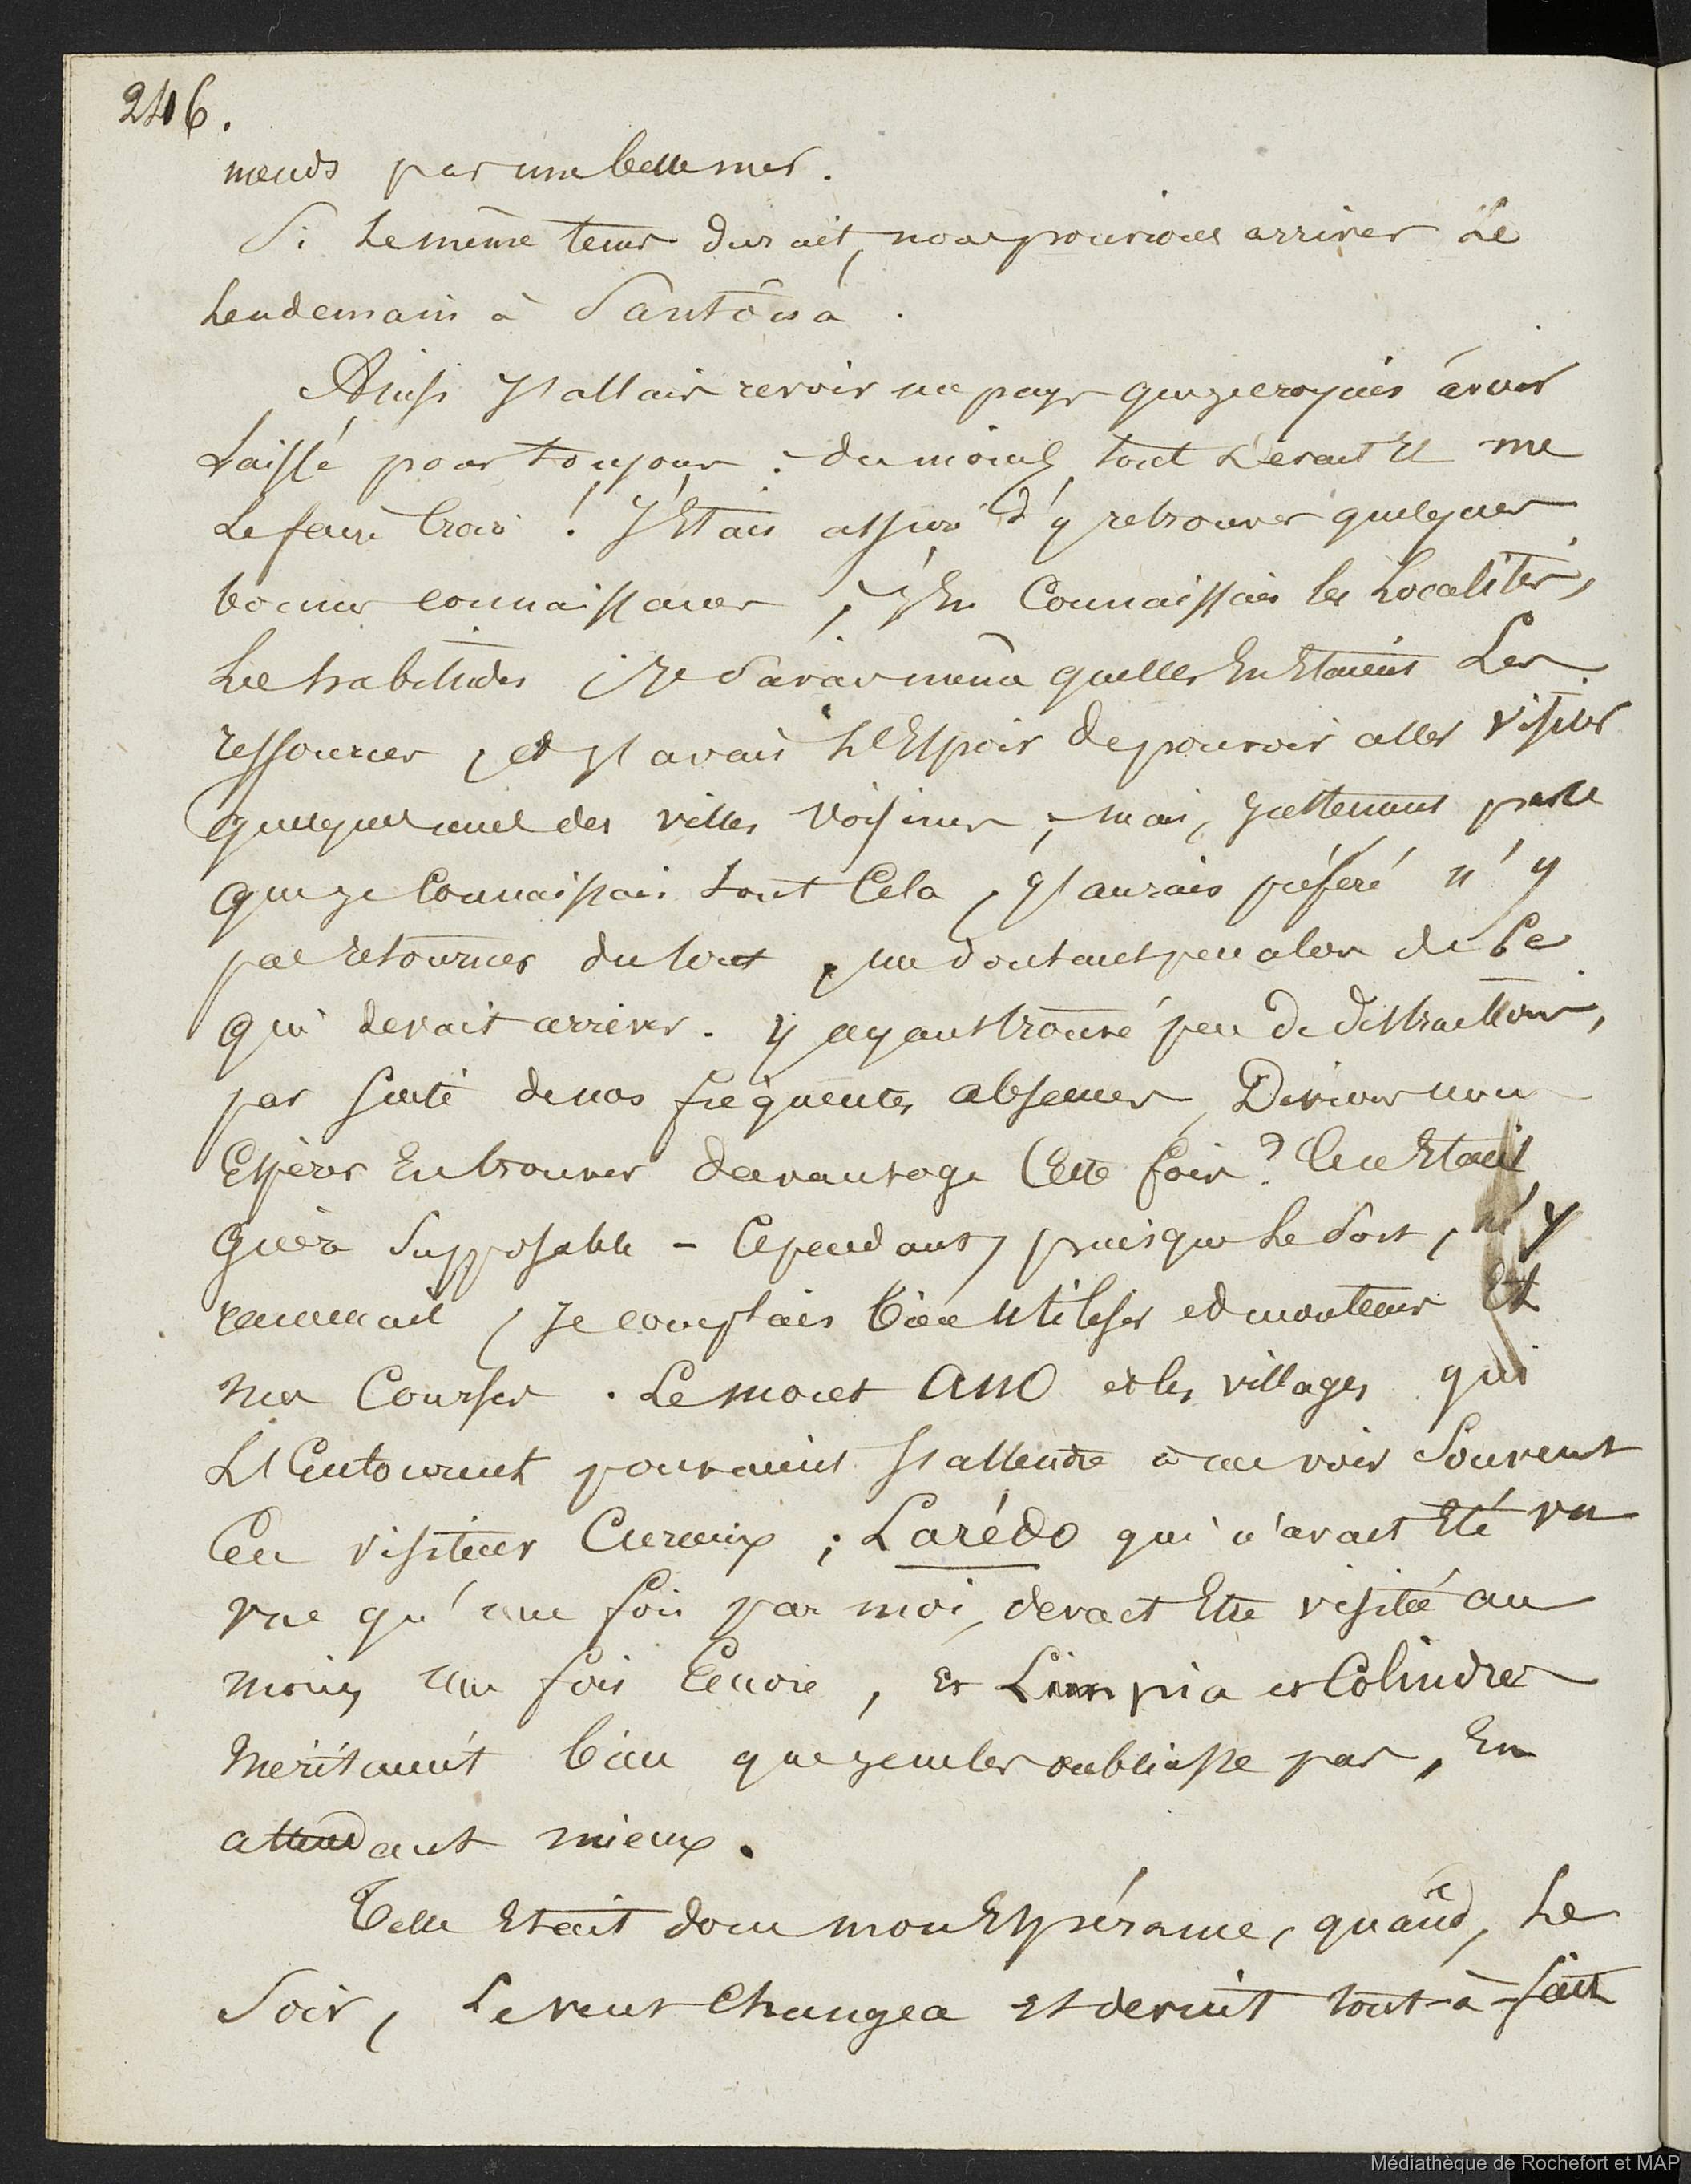 246.
nœuds par une belle mer.
Si le même tems durait, nous pourions arriver le
lendemain à Santôna.
Ainsi j'allais revoir un pays que je croyais avoir
laissé pour toujours : du moins, tout devait me
le faire croire ! J'Etais assuré d'y retrouver quelques
bonnes connaissances, j'En Connaissais les Localités,
les habitudes ; Je Savais même quelles En Etaient Les
ressources, et j'avais l'Espoir de pouvoir aller visiter
quelques unes des villes voisines ; mais, justement parce
que je Connaissais tout Cela, j'aurais préféré n'y
pas retourner du tout, me doutant peu alors de Ce
qui devait arriver. y ayant trouvé peu de distractions,
par suite de nos fréquentes absences, Devions nous
Espérer En trouver davantage Cette fois ? Ce n'Etait
guère Supposable - Cependant, puisque le Sort, m'y
ramenait, Je comptais bien utiliser et mon tems Et
mes Courses. Le mont ANO et les villages qui
L'Entourent pouvaient s'attendre à me voir Souvent
En visiteur Curieux ; Larédo qui n'avait Eté vu
vue qu'une fois par moi, devait Etre visitée au
moins une fois Encore, et Limpia et Colindres
Méritaient bien que je ne les oubliasse pas, En
attendant mieux.
Telle Etait donc mon Espérance, quand, le
Soir, Le vent Changea et devint tout-à-fait
Médiathèque de Rochefort et MAP